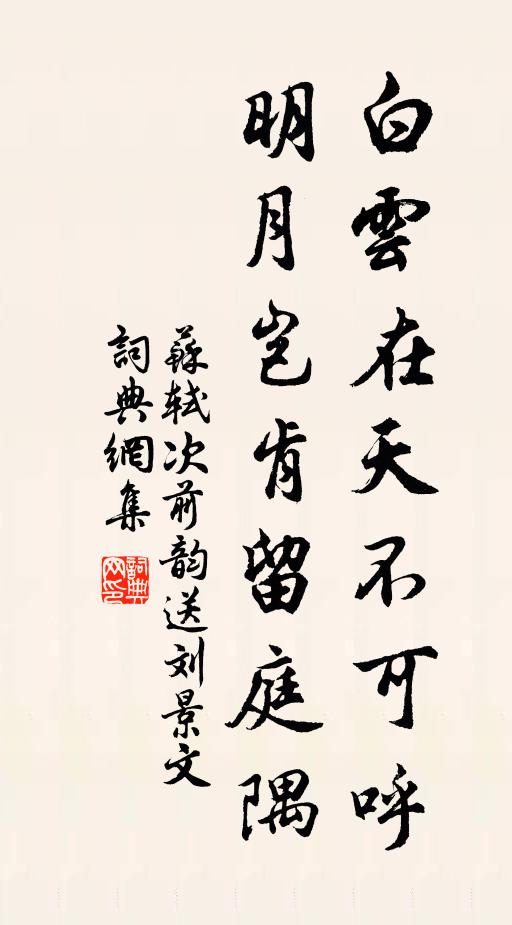 白雲在天不可呼
明月岂肯留庭隅
蘇軾次前韵送刘景文
詞典網集
詞典网印